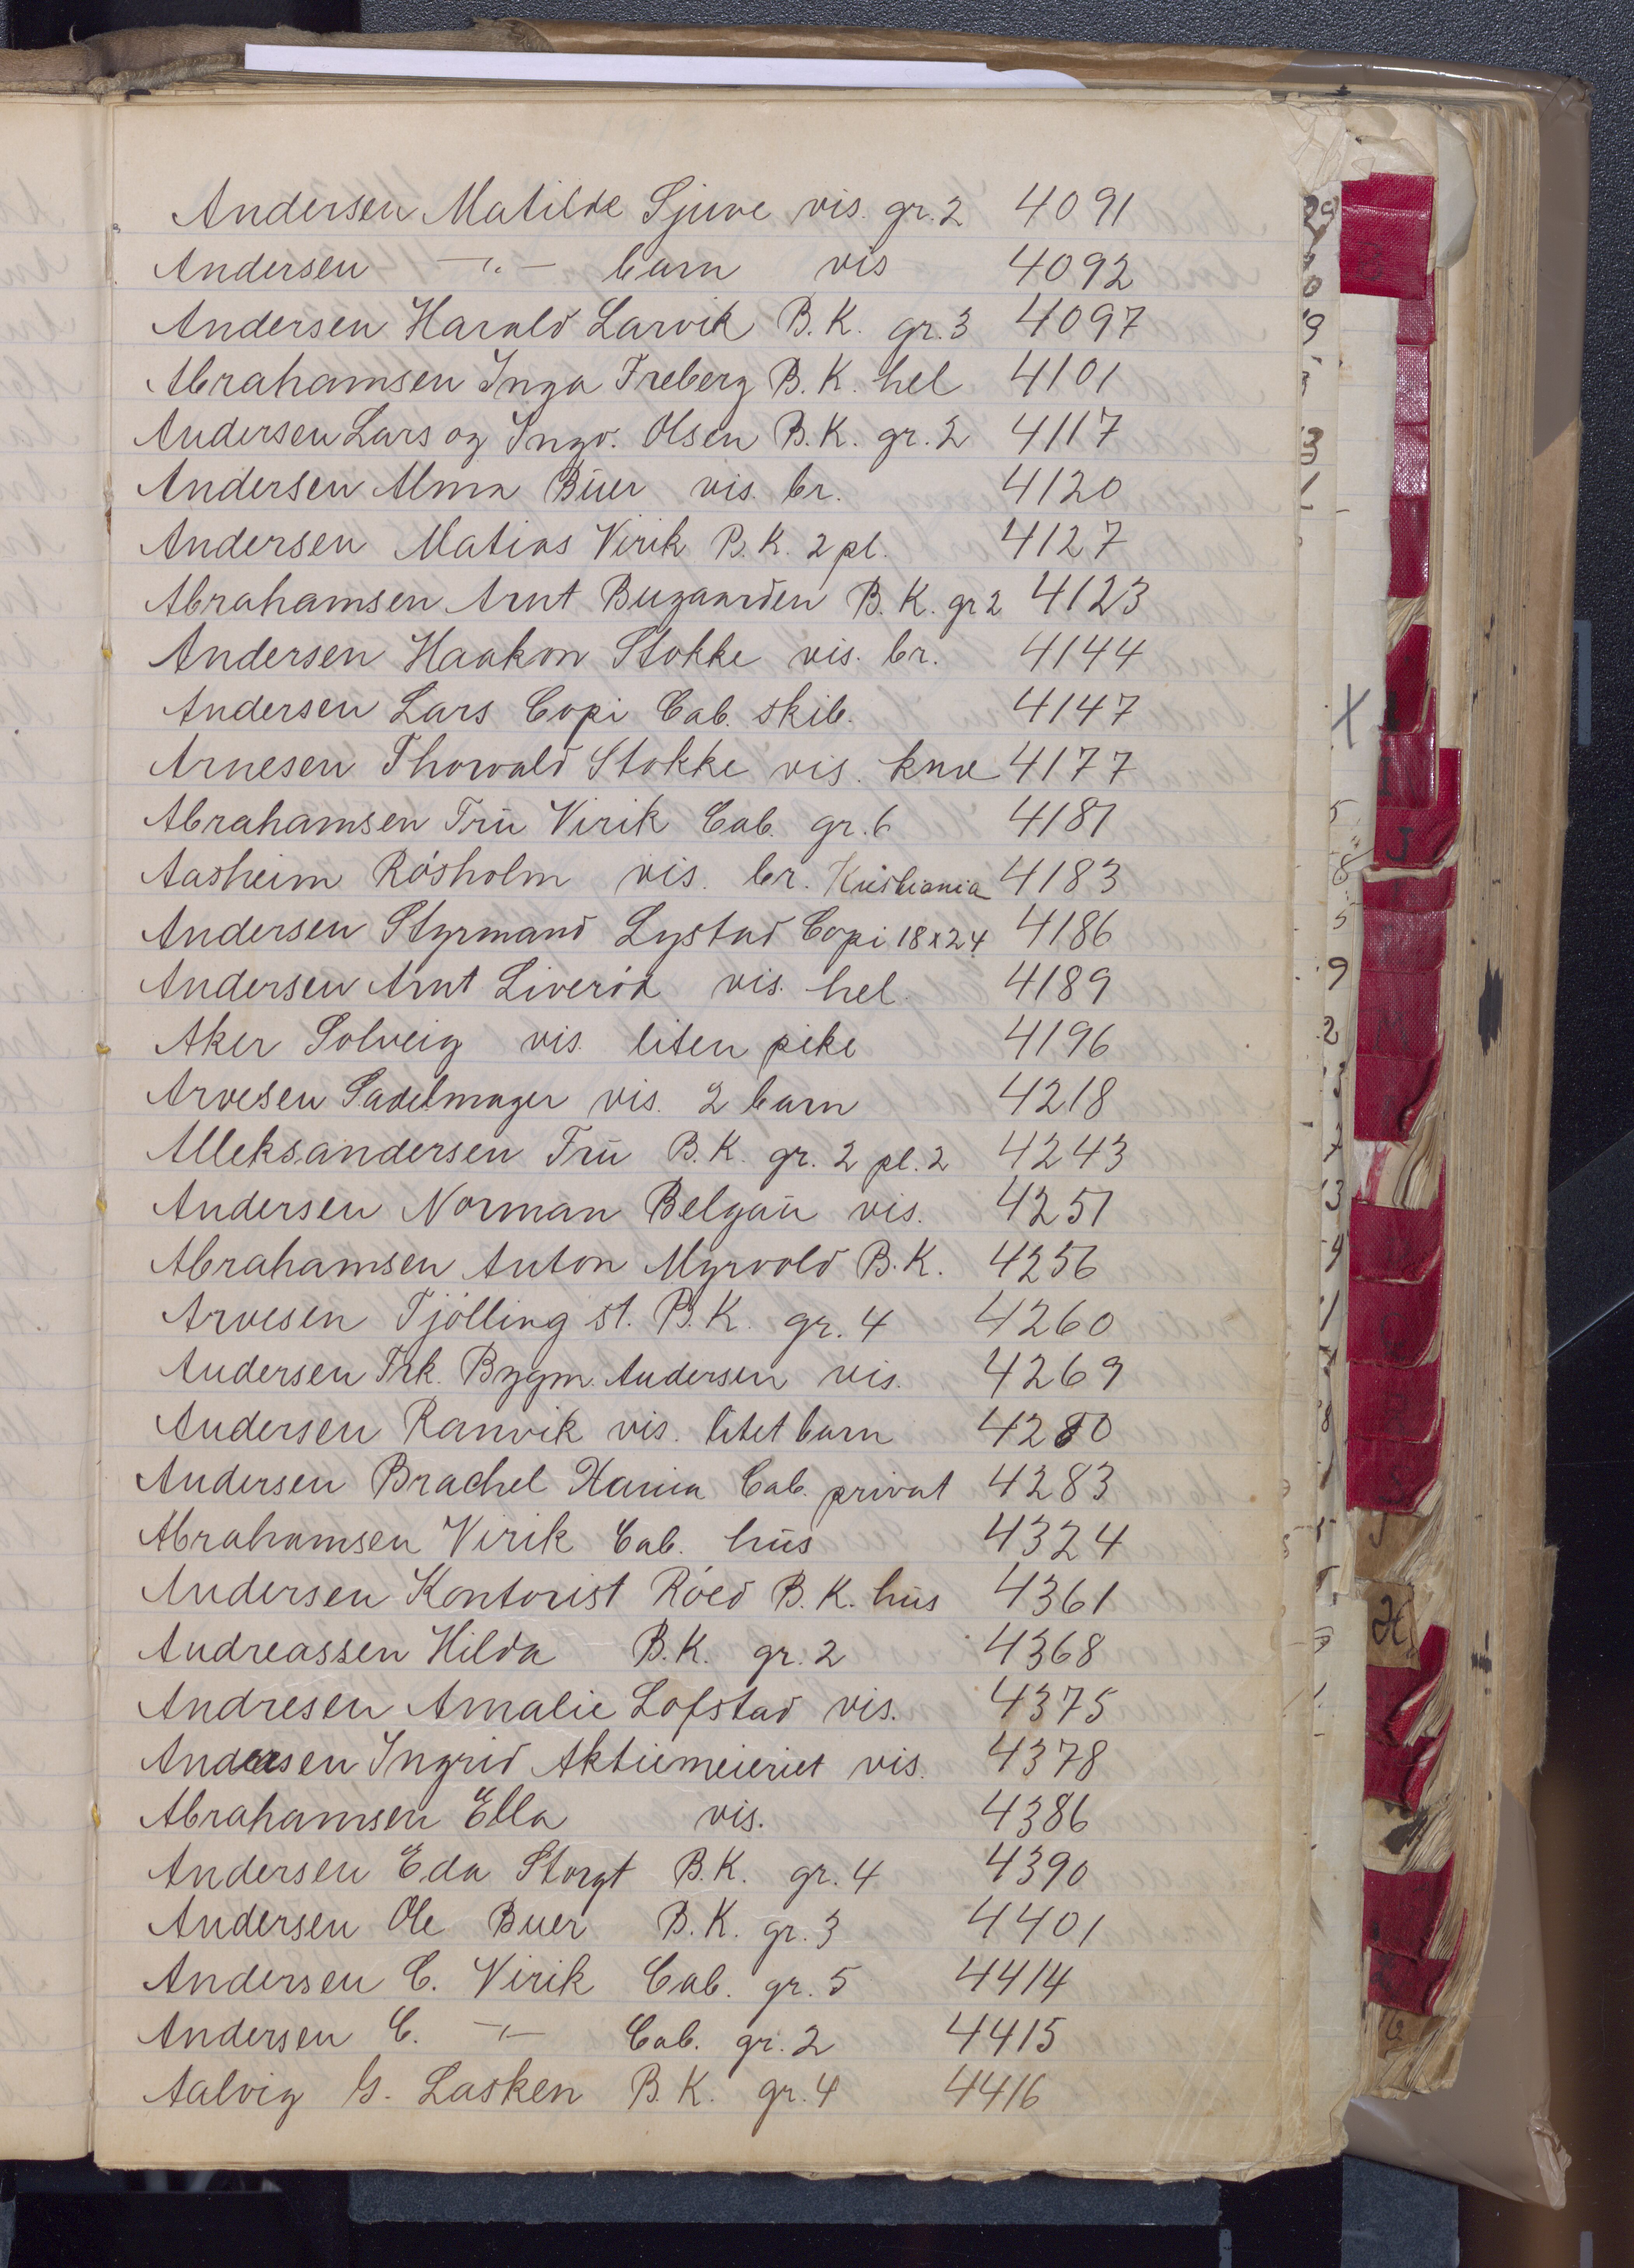 Andersen Matilde Sjuve vis. gr. 2 4091
Andersen —"— barn vis 4092
Andersen Harald Larvik B.K. gr. 3 4097
Abrahamsen Inga Freberg B.K. hel 4101
Andersen Lars og Ingv. Olsen B.K. gr. 2 4117
Andersen Alma Buer vis. br. 4120
Andersen Matias Virik B.K. 2 pl. 4127
Abrahamsen Arnt Bugaarden B.K. gr 2 4123
Andersen Haakon Stokke vis. br. 4144
Andersen Lars Copi Cab. skib. 4147
Arnesen Thorvald Stokke vis. knæ 4177
Abrahamsen Frū Virik Cab. gr. 6 4181
Aasheim Rösholm vis. br. Kristiania 4183
Andersen Styrmand Lystad Copi 18x24 4186
Andersen Arnt Liveröd vis. hel. 4189
Aker Solveig vis. liten pike 4196
Arvesen Sadelmager vis. 2 barn 4218
Alleksandersen Frū B.K. gr. 2 pl. 2 4243
Andersen Norman Belgaū vis. 4251
Abrahamsen Anton Myrvold B.K. 4256
Arvesen Tjölling st. B.K. gr. 4 4260
Andersen Frk. Bygm. Andersen vis. 4269
Andersen Ranvik vis. litet barn 4280
Andersen Brachel Cab. privat 4283
Abrahamsen Virik Cab. hūs 4324
Andersen Kontorist Röed B.K. hūs 4361
Andreassen Hilda B.K. gr. 2 4368
Andresen Amalie Lofstad vis. 4375
Andersen Ingrid Aktiemeieriet vis. 4378
Abrahamsen Ella vis. 4386
Andersen Eda Storgt B.K. gr. 4 4390
Andersen Ole Buer B.K. gr. 3 4401
Andersen C. Virik Cab. gr. 5 4414
Andersen C. —"— Cab. gr. 2 4415
Aalvig G. Lasken B.K. gr. 4 4416
X
I
J
M
N
Q
R
S
H